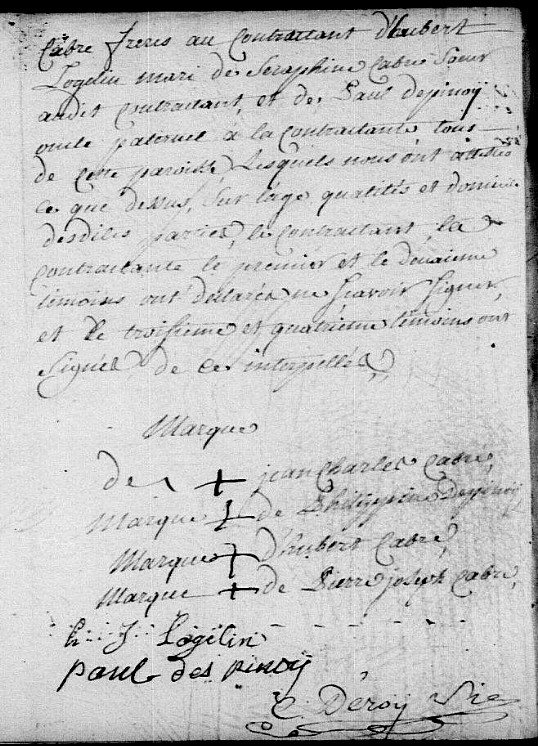 Cabre freres au Contraitant d'hubert
Logelin mari de Seraphine Cabre soeur
audit contraitant, et de Paul depinoy
oncle paternel à la contraitante tous
de cette paroisse, lesquels nous ont attesté
ce que dessus, sur l'age qualités et domicile
desdites parties, le contraitant, la
contraitante le premier et le deuxieme
témoins ont déclarés ne sçavoir signer,
et le troisieme et quatrieme témoins ont
signés de ce interpellés,,
Marque
de + jean Charles Cabre,
Marque + de Philippine Depinoy
Marque + d'hubert Cabre,
Marque + de Pierre joseph Cabre,
h J Logelin
paul des pinoy
C Deroy Vic